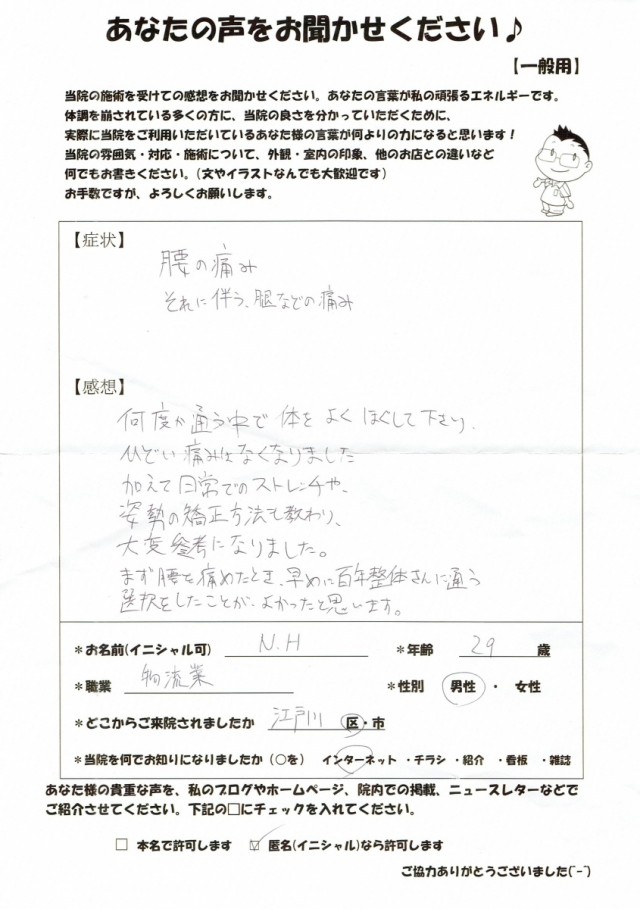 あなたの声をお聞かせください♪
【一般用】
当院の施術を受けての感想をお聞かせください。あなたの言葉が私の頑張るエネルギーです。
体調を崩されている多くの方に、当院の良さを分かっていただくために、
実際に当院をご利用いただいているあなた様の言葉が何よりの力になると思います!
当院の雰囲気・対応・施術について、外観・室内の印象、他のお店との違いなど
何でもお書きください。(文やイラストなんでも大歓迎です)
お手数ですが、よろしくお願いします。
【症状】
腰の痛み
それに伴う、腿などの痛み
【感想】
何度か通う中で体をよくほぐして下さり、
ひどい痛みはなくなりました
加えて日常でのストレッチや、
姿勢の矯正方法も教わり、
大変参考になりました。
まず腰を痛めたとき、早めに百年整体さんに通う
選択をしたことが、よかったと思います。
*お名前(イニシャル可) N.H *年齢 29 歳
*職業 物流業 *性別 男性 ・ 女性
*どこからご来院されましたか 江戸川 区・市
*当院を何でお知りになりましたか(○を) インターネット ・チラシ ・紹介 ・看板 ・雑誌
あなた様の貴重な声を、私のブログやホームページ、院内での掲載、ニュースレターなどで
ご紹介させてください。下記の□にチェックを入れてください。
□ 本名で許可します ☑ 匿名(イニシャル)なら許可します
ご協力ありがとうございました(^-^)